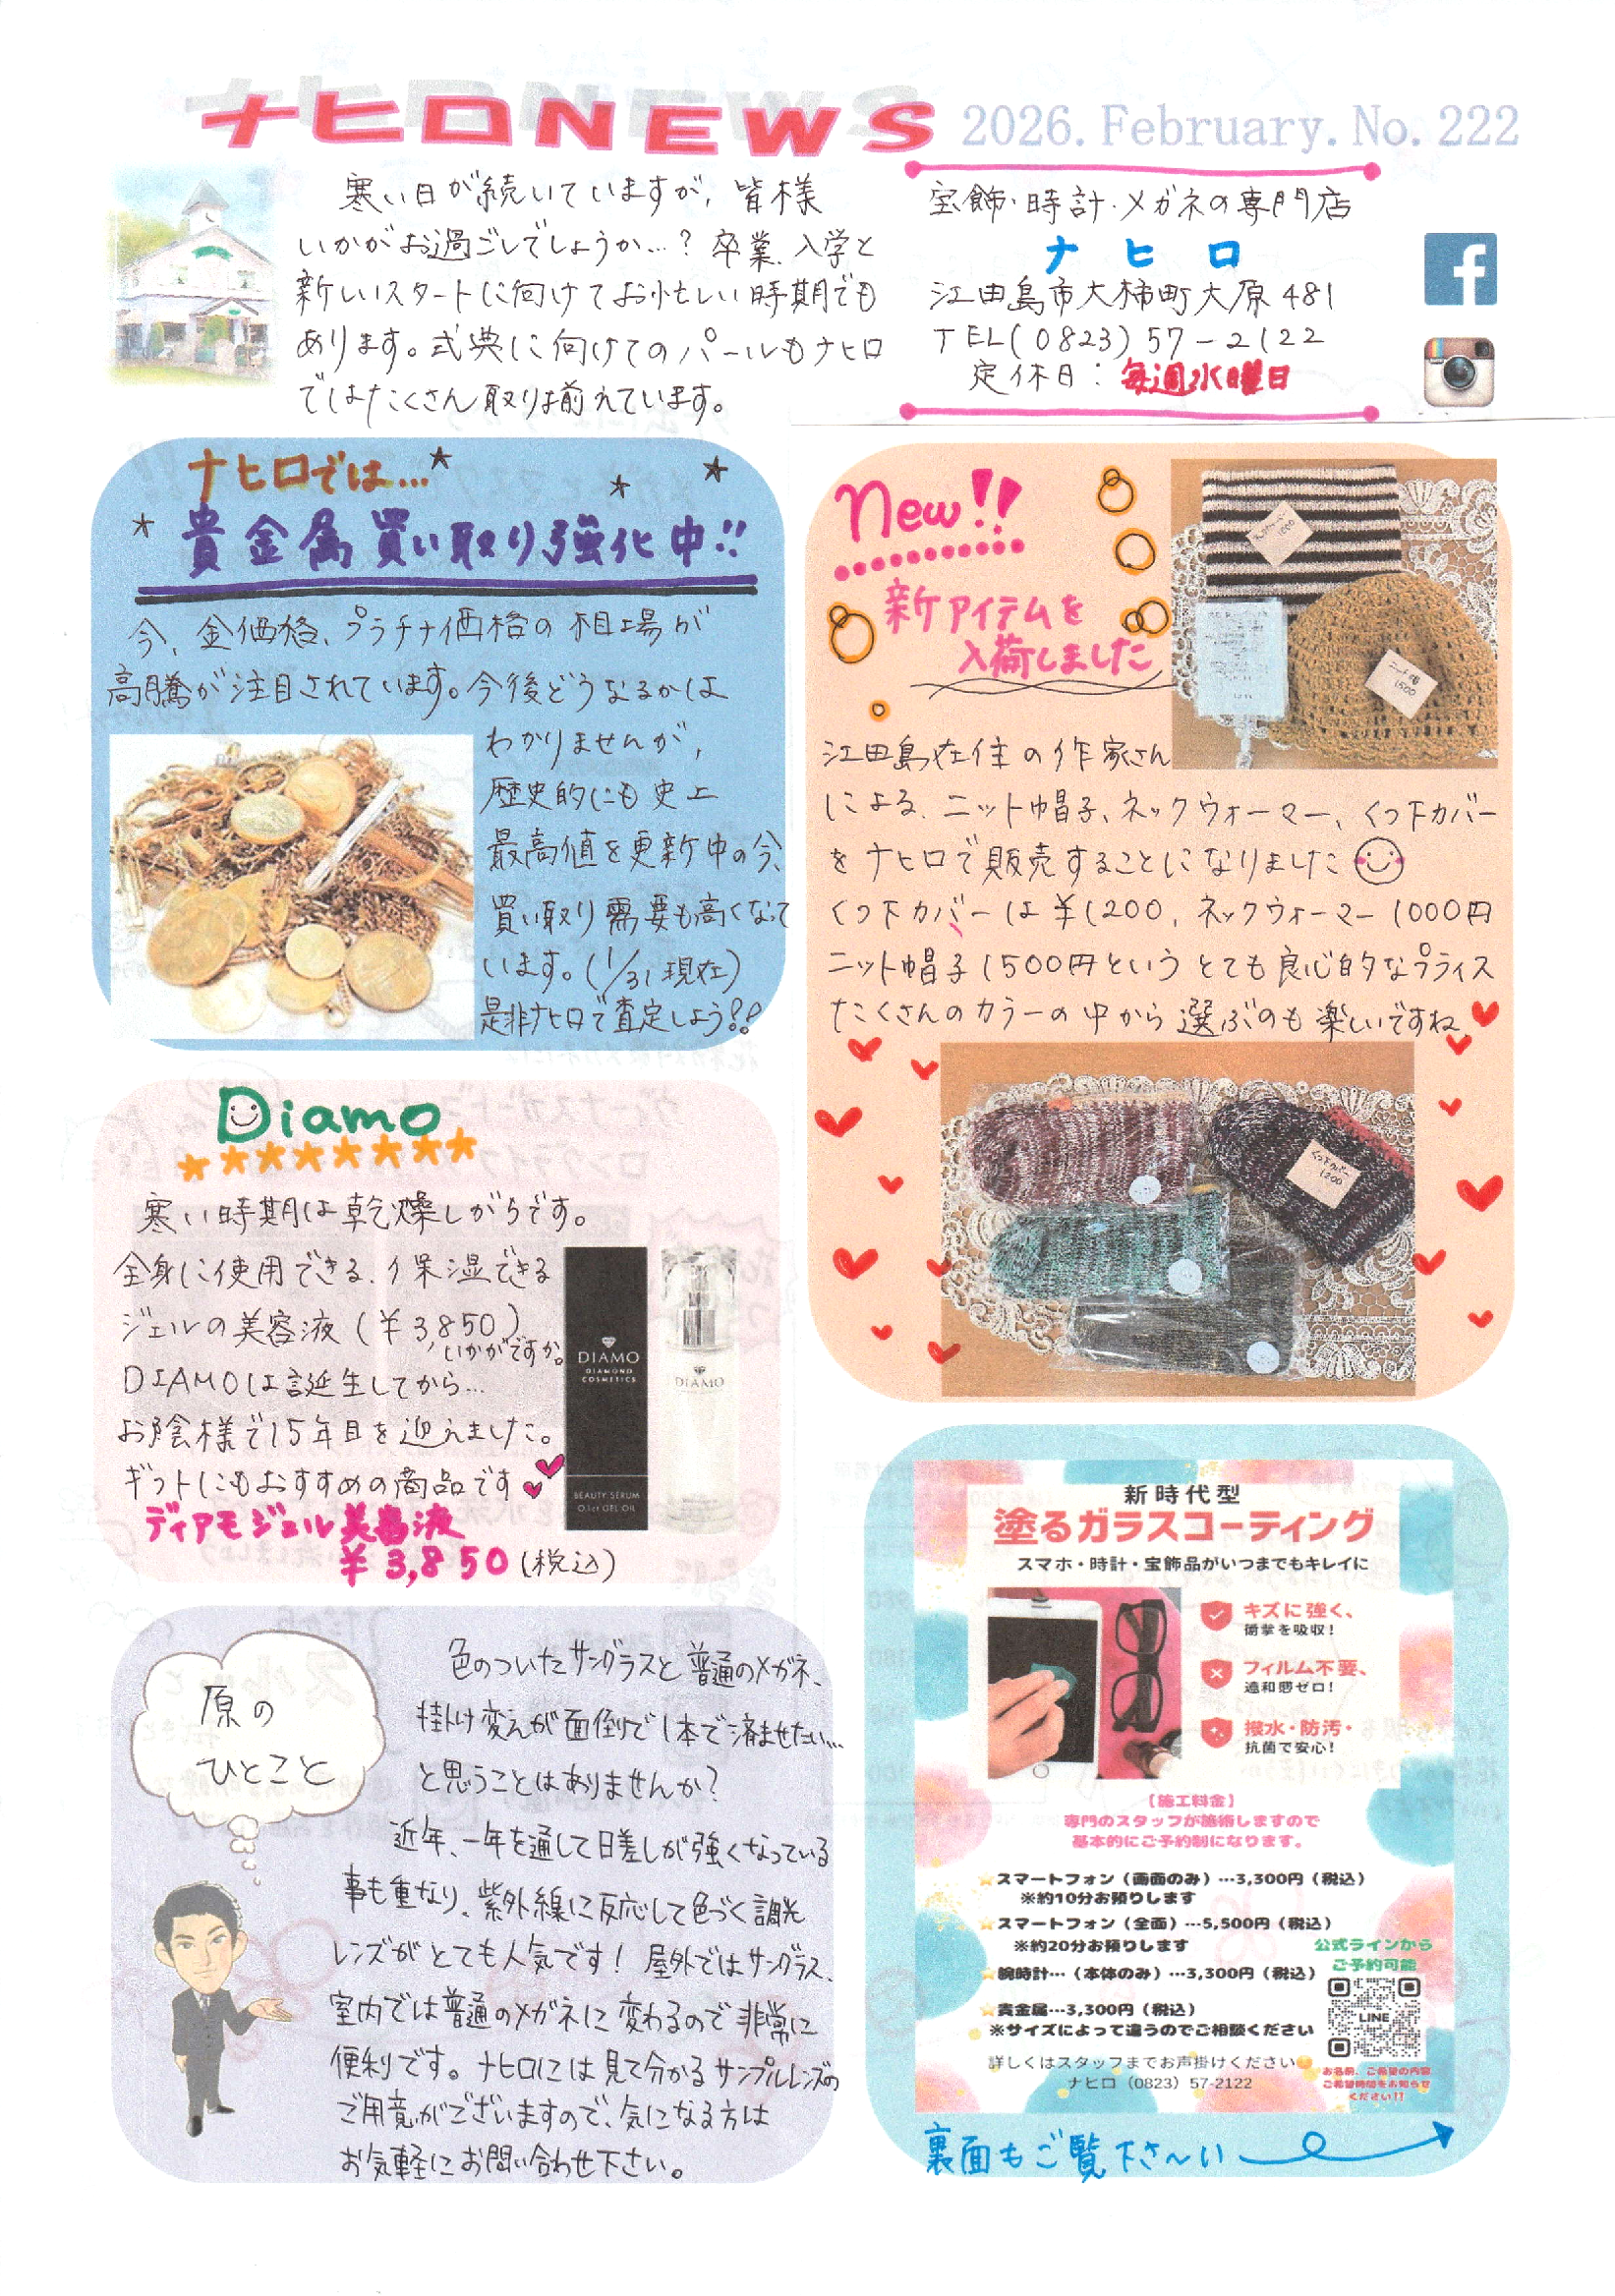 ナヒロNEWS 2026. February. No. 222
寒い日が続いていますが、皆様
いかがお過ごしでしょうか…？卒業、入学と
新しいスタートに向けてお忙しい時期でも
あります。式典に向けてのパールもナヒロ
ではたくさん取り揃えています。
宝飾・時計・メガネの専門店
ナヒロ
江田島市大柿町大原481
TEL(0823)57-2122
定休日：毎週水曜日
ナヒロでは…
貴金属買い取り強化中!!
今、金価格、プラチナ価格の相場が
高騰が注目されています。今後どうなるかは
わかりませんが、
歴史的にも史上
最高値を更新中の今、
買い取り需要も高くなって
います。(1/31現在)
是非ナヒロで査定しよう!!
New!!
新アイテムを
入荷しました
ニット帽
1500
江田島在住の作家さん
による、ニット帽子、ネックウォーマー、くつ下カバー
をナヒロで販売することになりました
くつ下カバーは¥1200、ネックウォーマー1000円
ニット帽子1500円というとても良心的なプライス
たくさんのカラーの中から選ぶのも楽しいですね
くつ下カバー
1200
Diamo
寒い時期は乾燥しがちです。
全身に使用できる、保湿できる
ジェルの美容液(¥3,850)
いかがですか。
DIAMOは誕生してから…
お陰様で15年目を迎えました。
ギフトにもおすすめの商品です
ディアモジェル美容液
¥3,850(税込)
DIAMO
DIAMOND
COSMETICS
BEAUTY SERUM
0.1ct GEL OIL
DIAMO
原の
ひとこと
色のついたサングラスと普通のメガネ、
掛け変えが面倒で1本で済ませたい…
と思うことはありませんか？
近年、一年を通して日差しが強くなっている
事も重なり、紫外線に反応して色づく調光
レンズがとても人気です！屋外ではサングラス、
室内では普通のメガネに変わるので非常に
便利です。ナヒロには見て分かるサンプルレンズの
ご用意がございますので、気になる方は
お気軽にお問い合わせ下さい。
新時代型
塗るガラスコーティング
スマホ・時計・宝飾品がいつまでもキレイに
キズに強く、
衝撃を吸収！
フィルム不要、
違和感ゼロ！
撥水・防汚・
抗菌で安心！
【施工料金】
専門のスタッフが施術しますので
基本的にご予約制になります。
スマートフォン（画面のみ）…3,300円（税込）
※約10分お預りします
スマートフォン（全面）…5,500円（税込）
※約20分お預りします
腕時計…（本体のみ）…3,300円（税込）
貴金属…3,300円（税込）
※サイズによって違うのでご相談ください
公式ラインから
ご予約可能
LINE
お名前、ご希望の内容
ご希望時間をお知らせ
ください!!
詳しくはスタッフまでお声掛けください
ナヒロ（0823）57-2122
裏面もご覧下さ～い